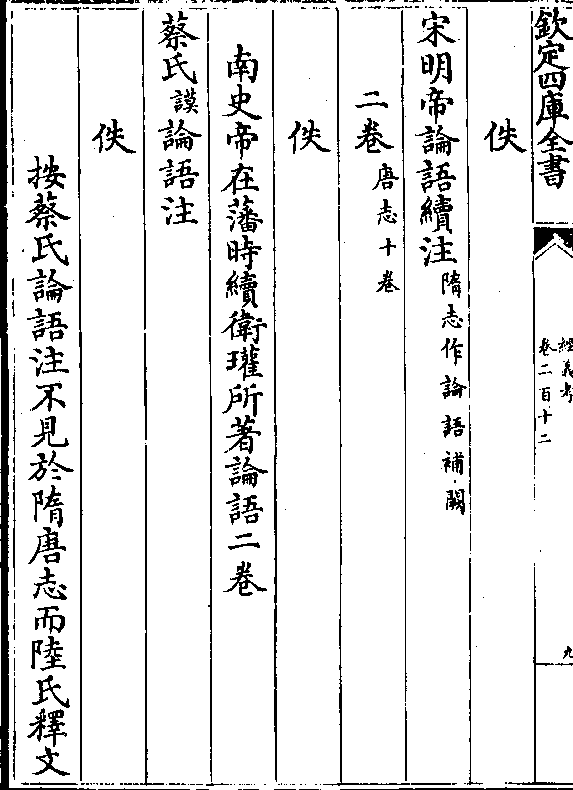 欽定四庫全書
經義考
卷二百十二
九
佚
宋明帝論語續注隋志作論語補闕
二卷唐志十卷
佚
南史帝在藩時續衛瓘所著論語二卷
蔡氏謨論語注
佚
按蔡氏論語注不見於隋唐志而陸氏釋文